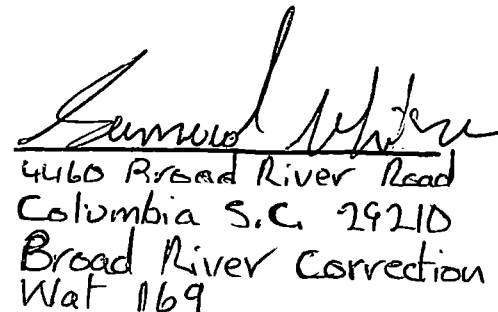 4460 Broad River Road
Columbia S.C. 29210
Broad River Correction
Wat 169